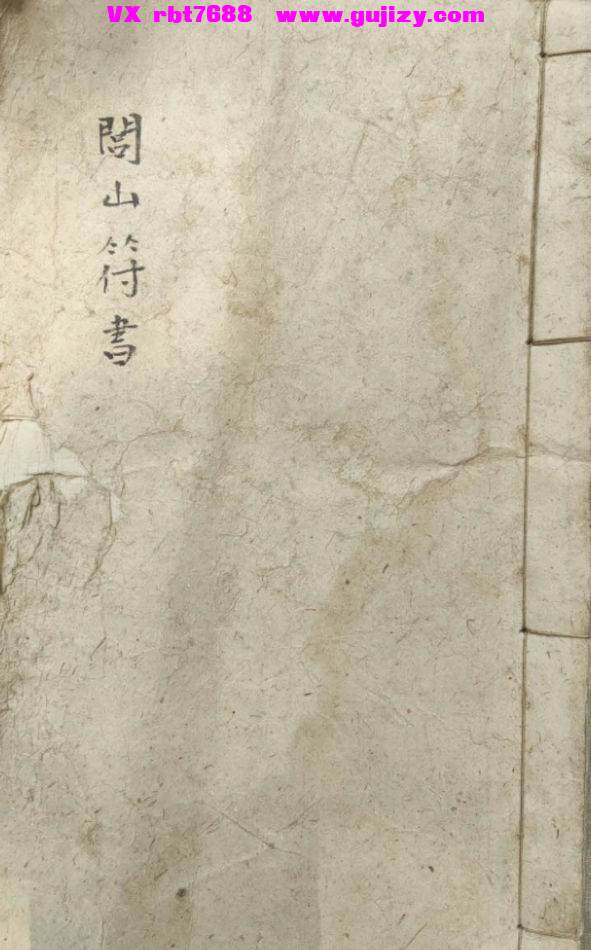 VX rbt7688 www.gujizy.com
閭山符書